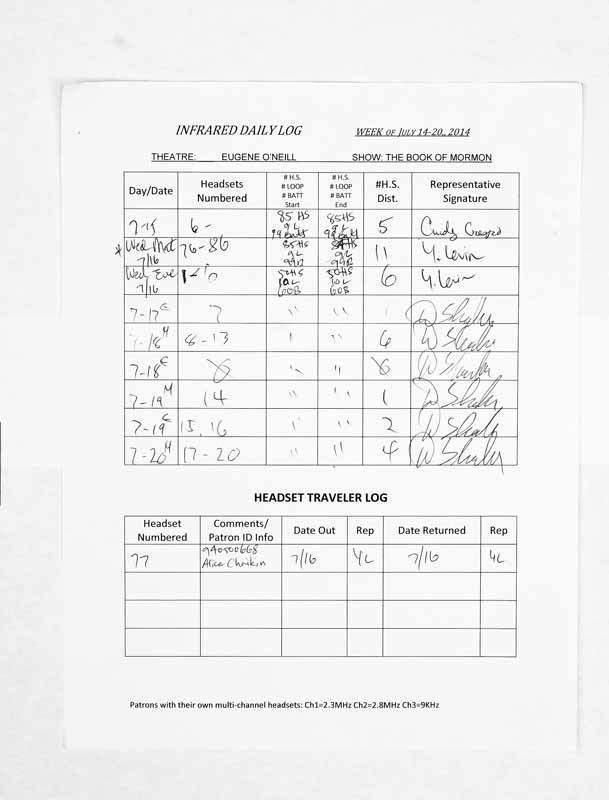 INFRARED DAILY LOG WEEK OF JULY 14-20, 2014
THEATRE: EUGENE O'NEILL SHOW: THE BOOK OF MORMON
Day/Date Headsets Numbered # H.S. # LOOP # BATT Start # H.S. # LOOP # BATT End #H.S. Dist. Representative Signature
7-15 6- 85 HS 9L 99 Batt 85HS 9L 5 Cindy
* Wed Mat 7/16 76-86 85HS 9L 99B 9L 99B 11 Y. Levin
Wed Eve 7/16 1-6 50HS 10L 60B 50HS 10L 60B 6 Y. Levin
7-17E 7 " " 1
7-18M 8-13 " 6
7-18E " "
7-19M 14 " " 1
7-19E 15, 16 " " 2
7-20M 17-20 " " 4
HEADSET TRAVELER LOG
Headset Numbered Comments/ Patron ID Info Date Out Rep Date Returned Rep
77 940500668 Alice Chaikin 7/16 YL 7/16 YL
Patrons with their own multi-channel headsets: Ch1=2.3MHz Ch2=2.8MHz Ch3=9KHz